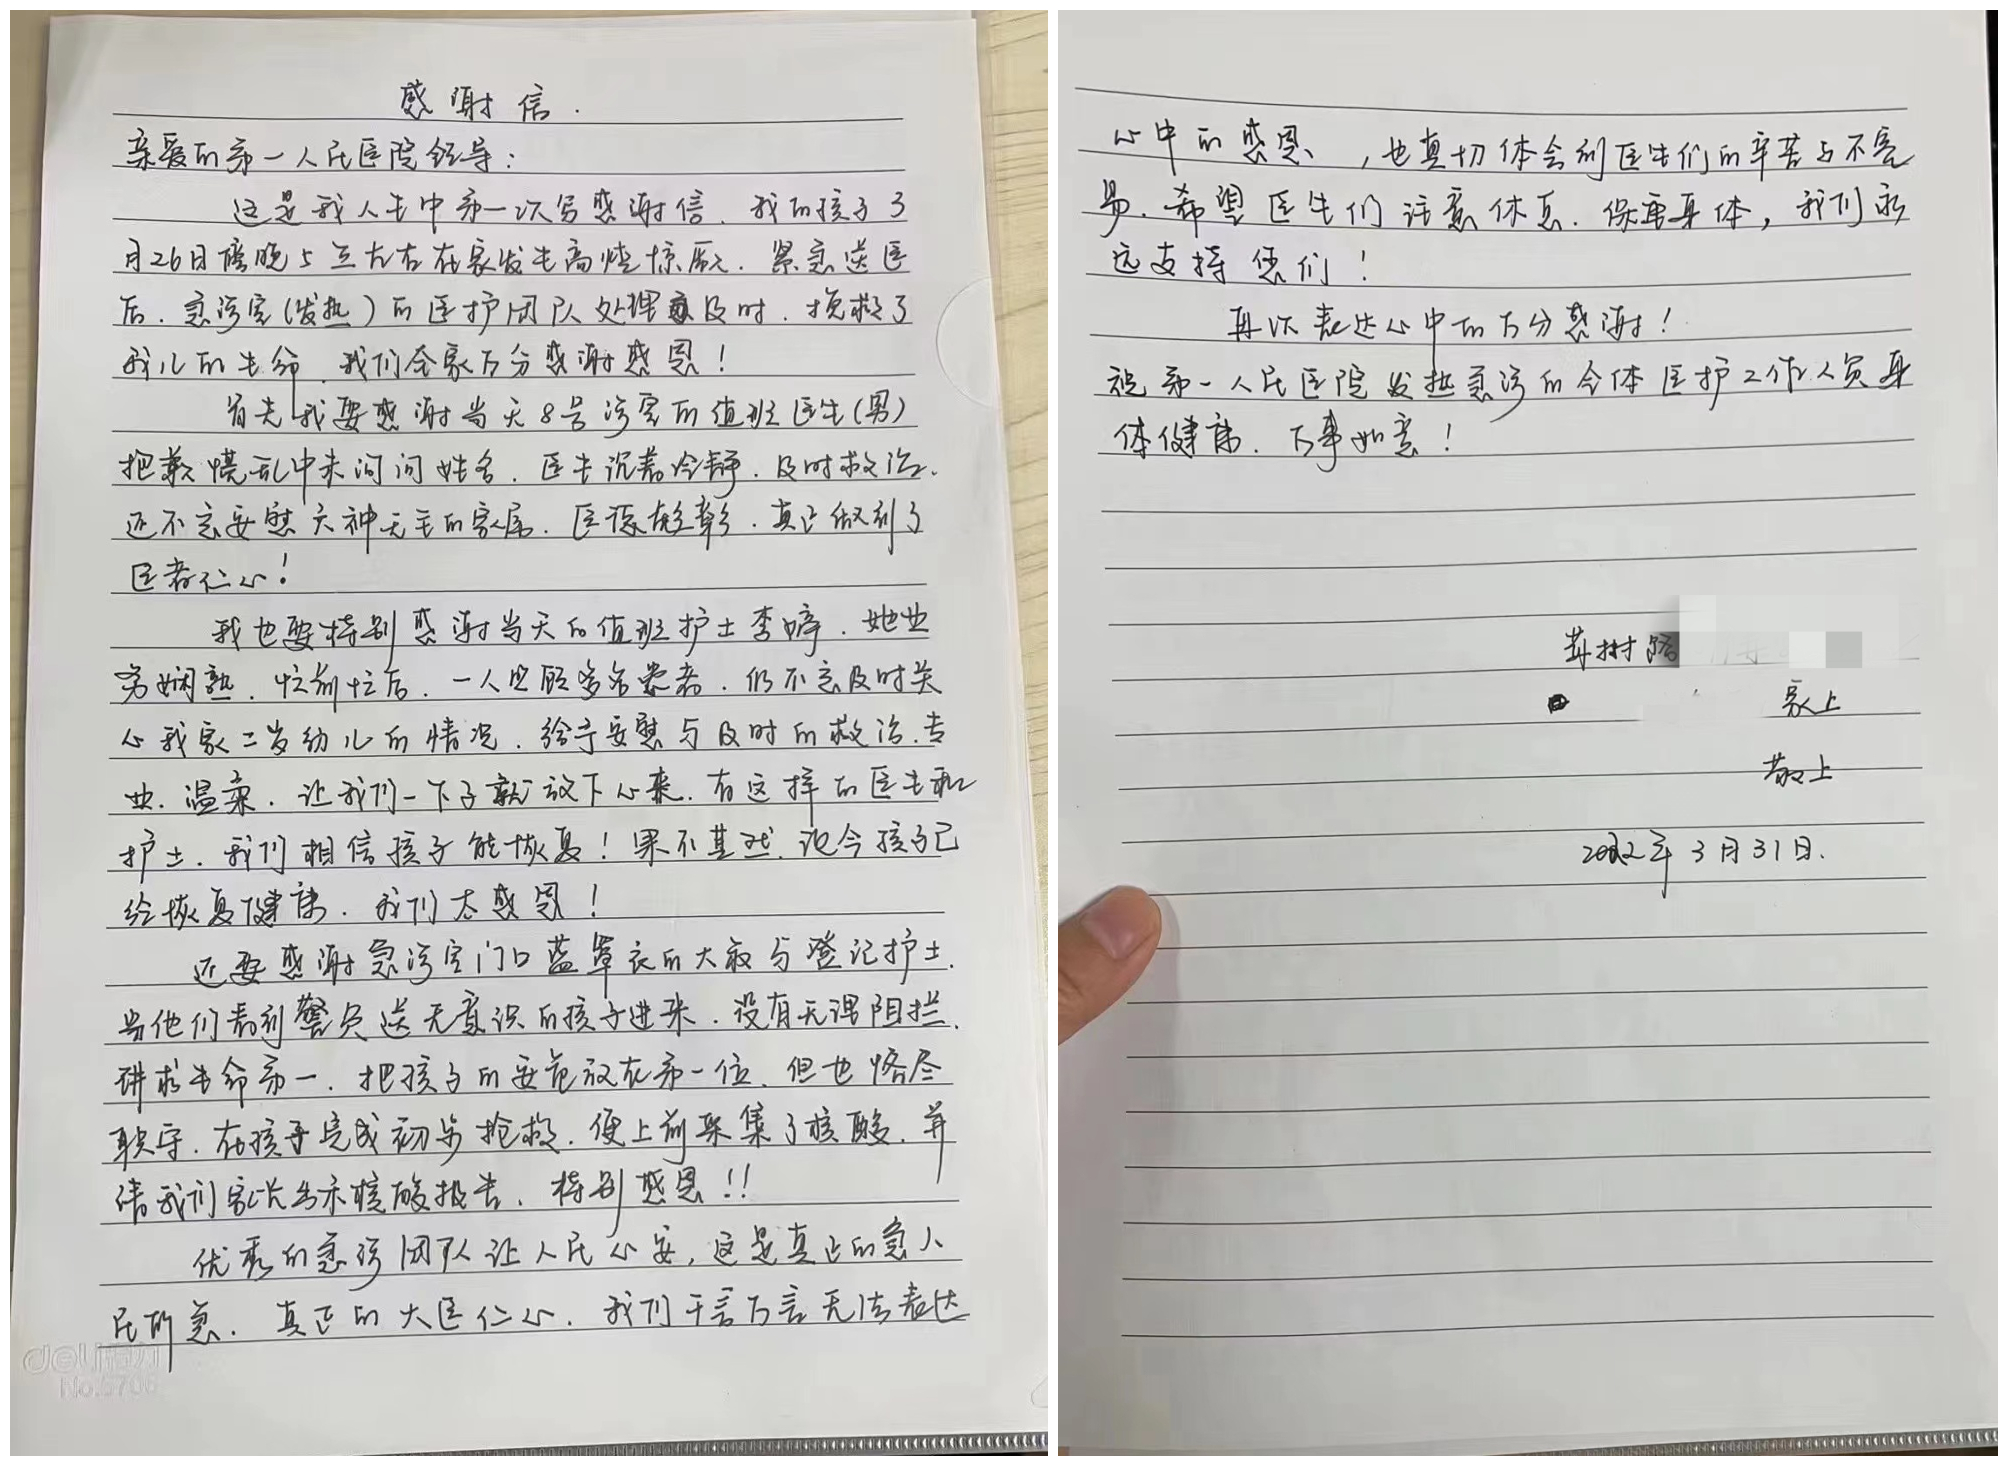 感谢信.
亲爱的第一人民医院领导：
这是我人生中第一次写感谢信．我的孩子3
月26日傍晚5点左右在家发生高烧惊厥．紧急送医
后．急诊室(发热)的医护团队处理及时．挽救了
我儿的生命．我们全家万分感谢感恩！
首先我要感谢当天8号诊室的值班医生(男)
抱歉慌乱中未询问姓名．医生沉着冷静．及时救治．
还不忘安慰六神无主的家属．医德彰．真正做到了
医者仁心！
我也要特别感谢当天的值班护士李婷．她业
务娴熟．忙前忙后．一人照顾多名患者．仍不忘及时关
心我家二岁幼儿的情况．给予安慰与及时的救治．专
业．温柔．让我们一下子就放下心来．有这样的医生和
护士．我们相信孩子能恢复！果不其然．迄今孩子已
经恢复健康．我们太感恩！
还要感谢急诊室门口蓝罩衣的大叔与登记护士．
当他们看到警员送无意识的孩子进来．没有无谓阻拦．
讲求生命第一．把孩子的安危放在第一位．但也恪尽
职守．在孩子完成初步抢救．便上前采集了核酸．并
请我们家长出示核酸报告．特别感恩!!
优秀的急诊团队让人民心安，这是真正的急人
民所急．真正的大医仁心．我们千言万言无法表达
心中的感恩，也真切体会到医生们的辛苦与不容
易．希望医生们注意休息．保重身体，我们永
远支持您们！
再次表达心中的万分感谢！
祝第一人民医院发热急诊的全体医护工作人员身
体健康．万事如意！
树路
家上
敬上
2022年3月31日．
deli得力
No.5706